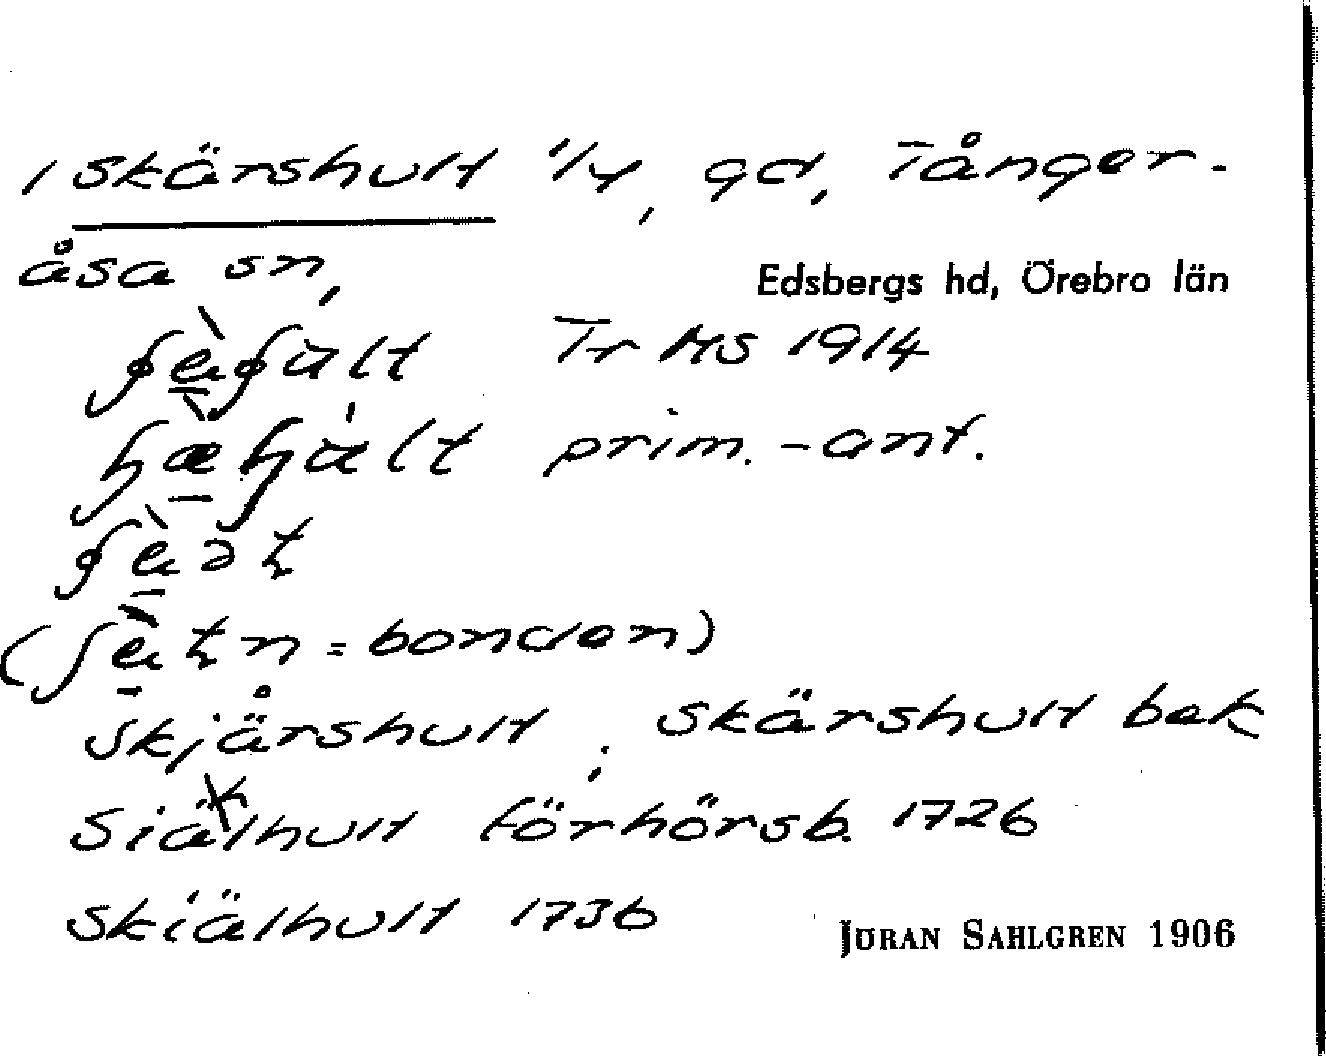 1 Skärshult 1/4, gd, Tånger-
åsa sn,
Edsbergs hd, Örebro län
Tr HS 1914
prim.-ant.
= bonden)
Skjårshult ; Skärshult bek
Siälhult förhörsb. 1726
Skiälhult 1736
JÖRAN SAHLGREN 1906